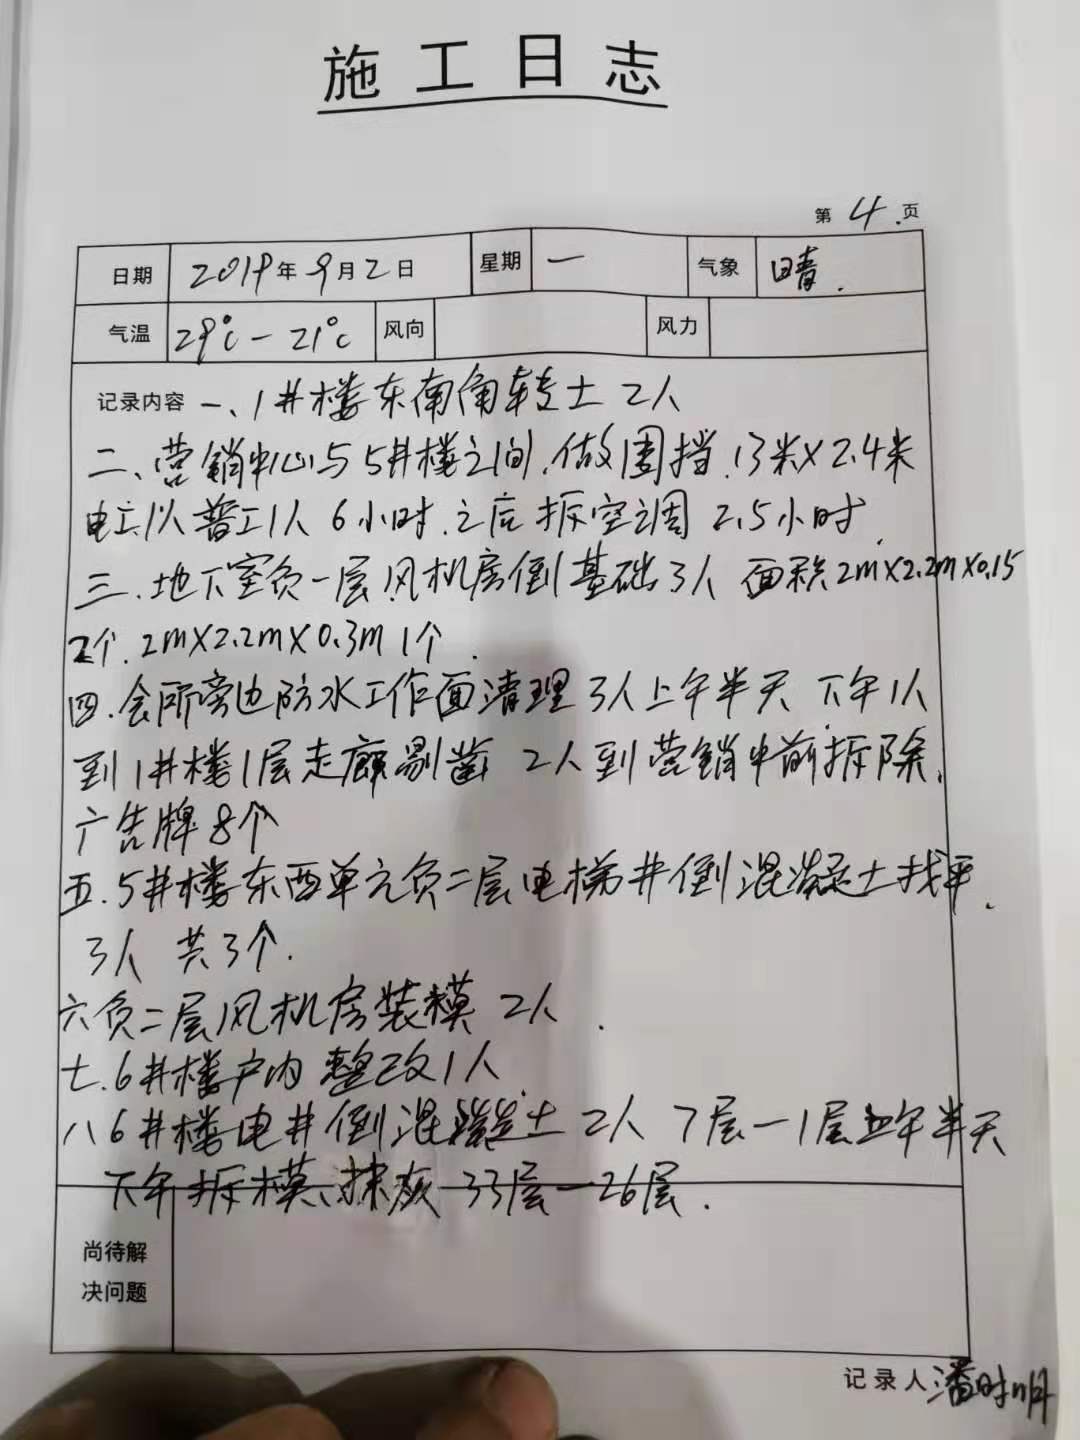 施工日志
第 4 页
日期 2019年9月2日 星期 一 气象 晴.
气温 29℃-21℃ 风向 风力
记录内容 一、1井楼东南角转土 2人
二、营销中心与5井楼之间.做围挡.13米X2.4米
电工1人普工1人 6小时.之后拆空调 2.5小时.
三.地下室负一层风机房倒基础3人 面积2mX2.2mX0.15
2个.2mX2.2mX0.3m1个.
四.会所旁边防水工作面清理3人上午半天 下午1人
到1井楼1层走廊剔凿 2人到营销中前拆除.
广告牌8个
五.5井楼东西单元负二层电梯井倒混凝土找平.
3人 共3个.
六负二层风机房装模 2人.
七.6井楼户内整改1人
八6井楼电井倒混凝土 2人 7层-1层上午半天
下午拆模、抹灰 33层-26层.
尚待解
决问题
记录人 潘时明